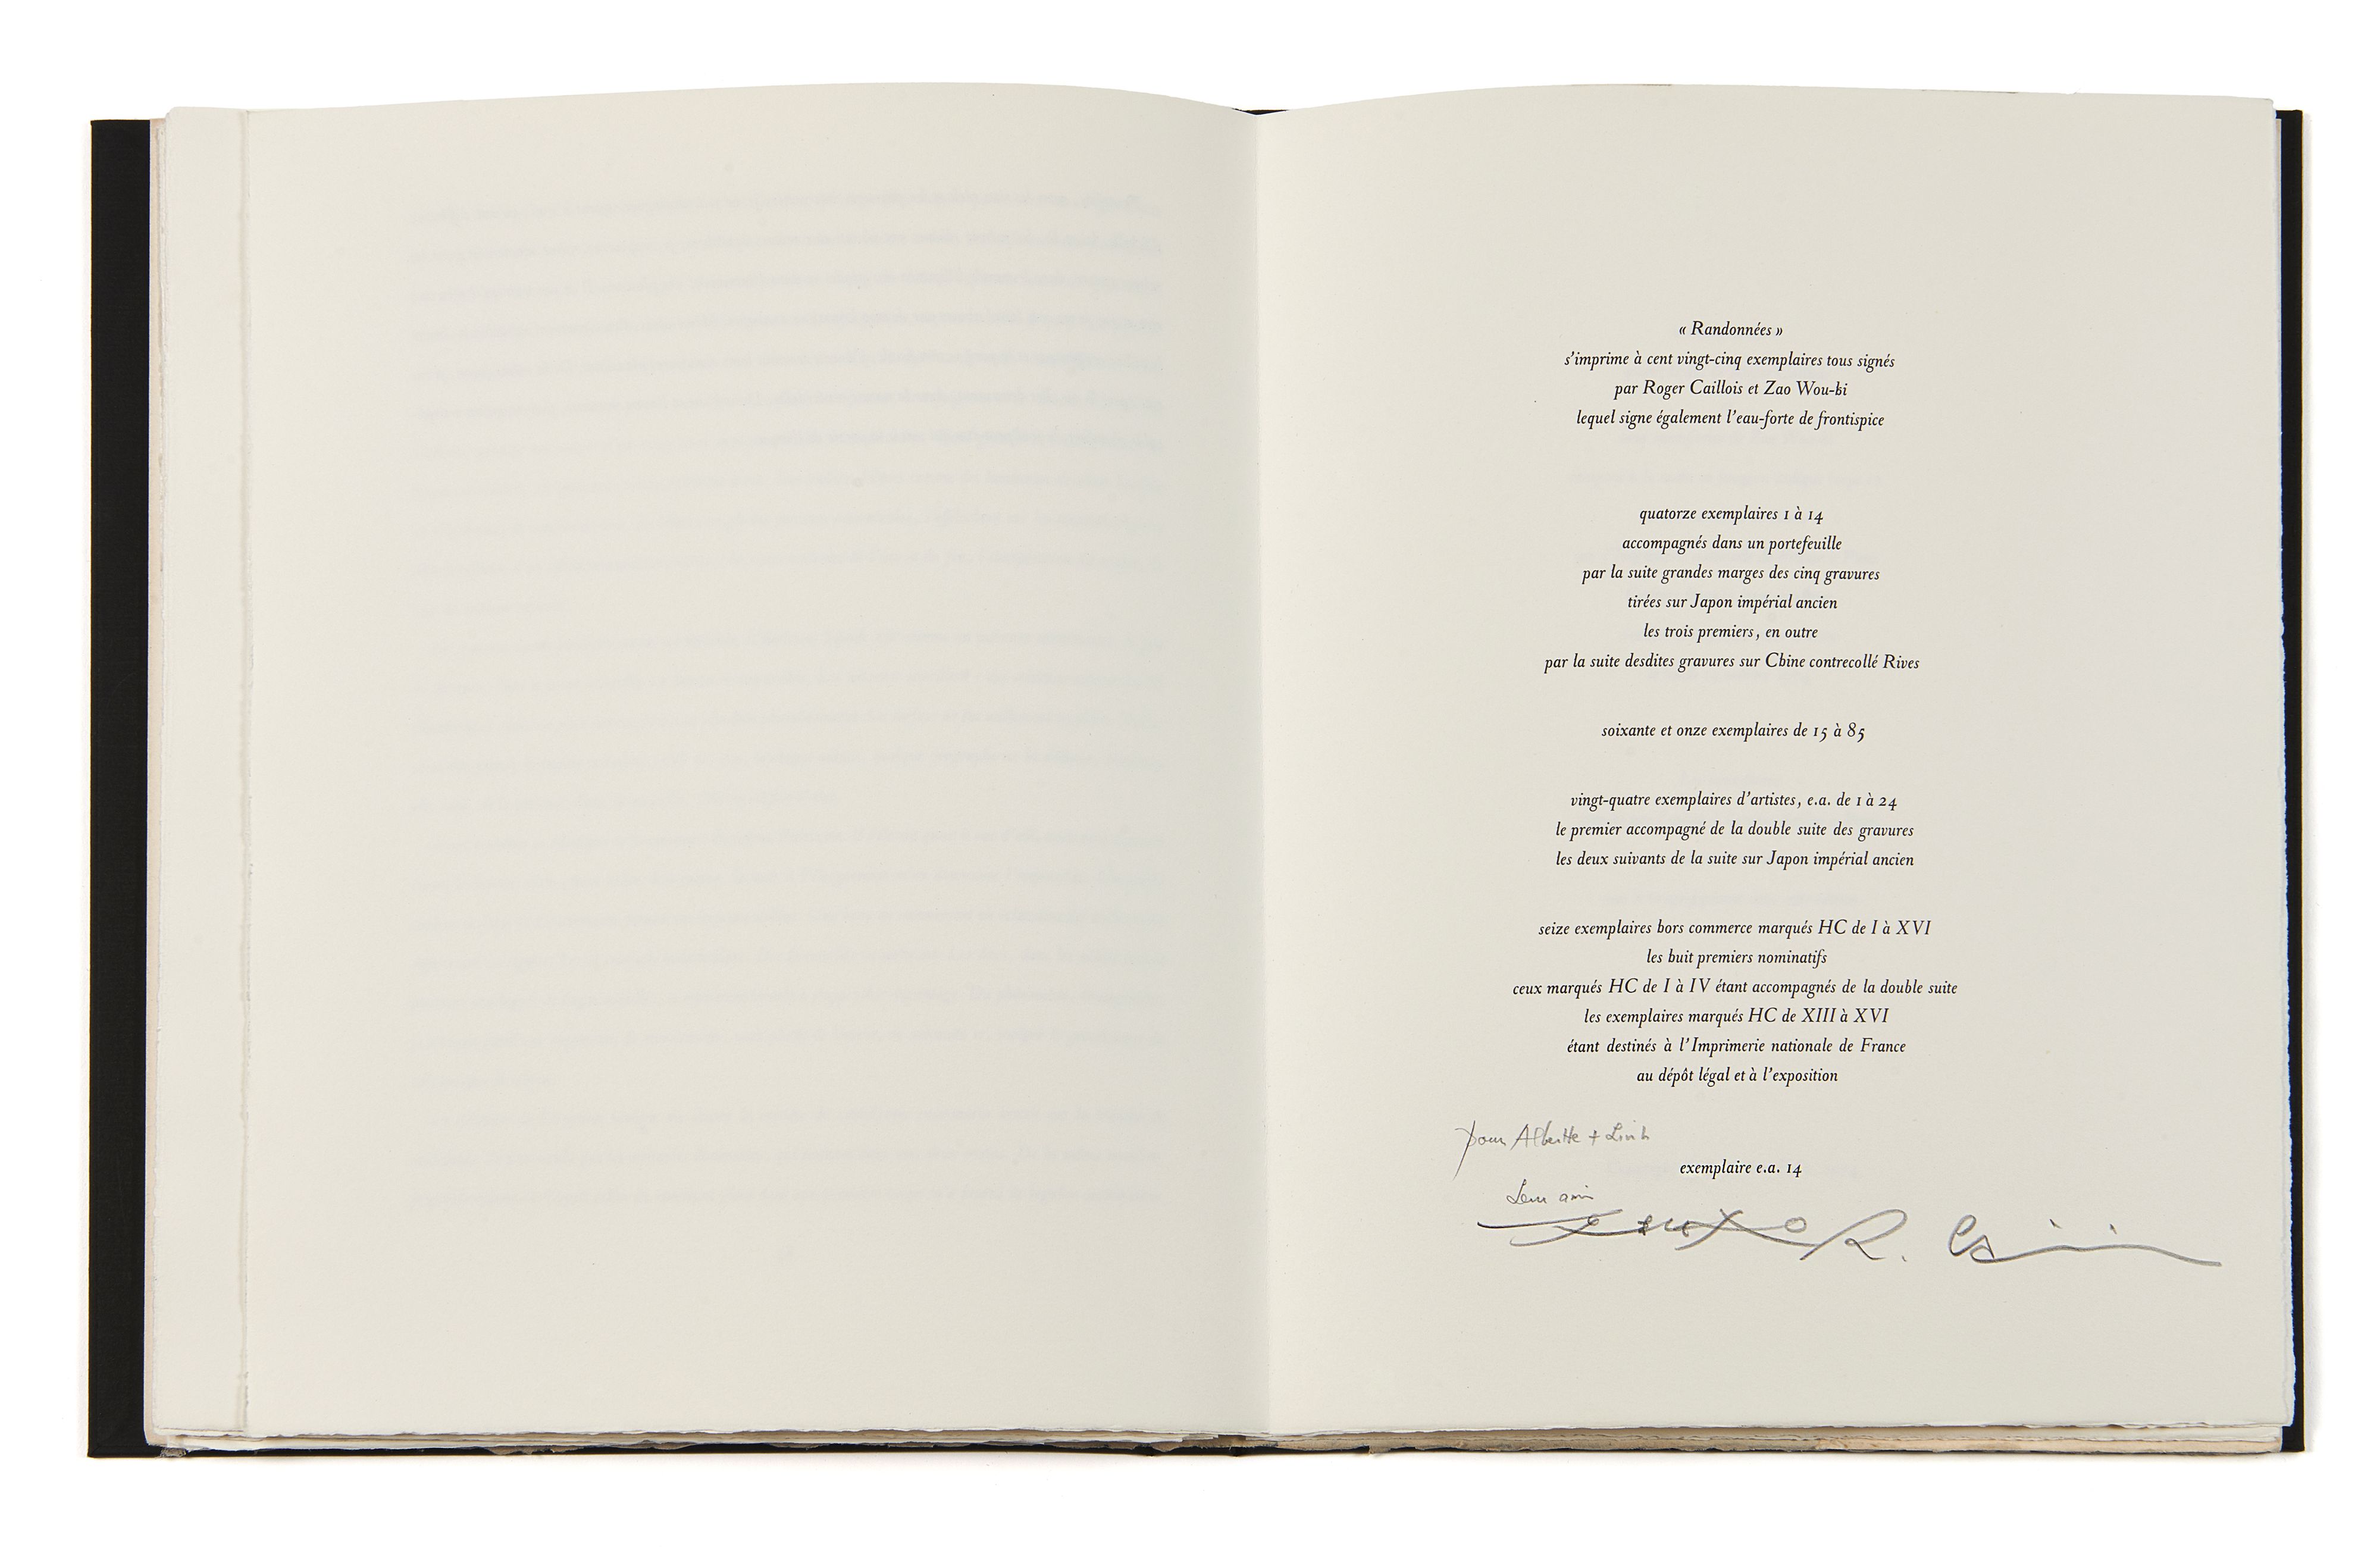 « Randonnées »
s'imprime à cent vingt-cinq exemplaires tous signés
par Roger Caillois et Zao Wou-ki
lequel signe également l'eau-forte de frontispice
quatorze exemplaires 1 à 14
accompagnés dans un portefeuille
par la suite grandes marges des cinq gravures
tirées sur Japon impérial ancien
les trois premiers, en outre
par la suite desdites gravures sur Chine contrecollé Rives
soixante et onze exemplaires de 15 à 85
vingt-quatre exemplaires d'artistes, e.a. de 1 à 24
le premier accompagné de la double suite des gravures
les deux suivants de la suite sur Japon impérial ancien
seize exemplaires hors commerce marqués HC de I à XVI
les huit premiers nominatifs
ceux marqués HC de I à IV étant accompagnés de la double suite
les exemplaires marqués HC de XIII à XVI
étant destinés à l'Imprimerie nationale de France
au dépôt légal et à l'exposition
pour Albertte +
exemplaire e.a. 14
Leur ami
R.